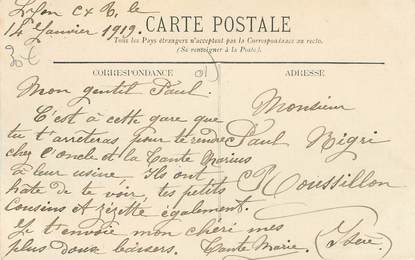 Lyon Cx R. le
14 Janvier 1919.
CARTE POSTALE
Tous les Pays étrangers n'acceptent pas la Correspondance au recto.
(Se renseigner à la Poste).
CORRESPONDANCE
ADRESSE
Mon gentil Paul.
C'est à cette gare que
tu t'arrêteras pour te rendre
chez l'Oncle et la Tante Marius
à leur usine. Ils ont
hâte de te voir, tes petits
Cousins et Zézette également.
Je t'envoie mon chéri mes
plus doux baisers. Tante Marie.
Monsieur
Paul Nigri
Roussillon
(Isère)